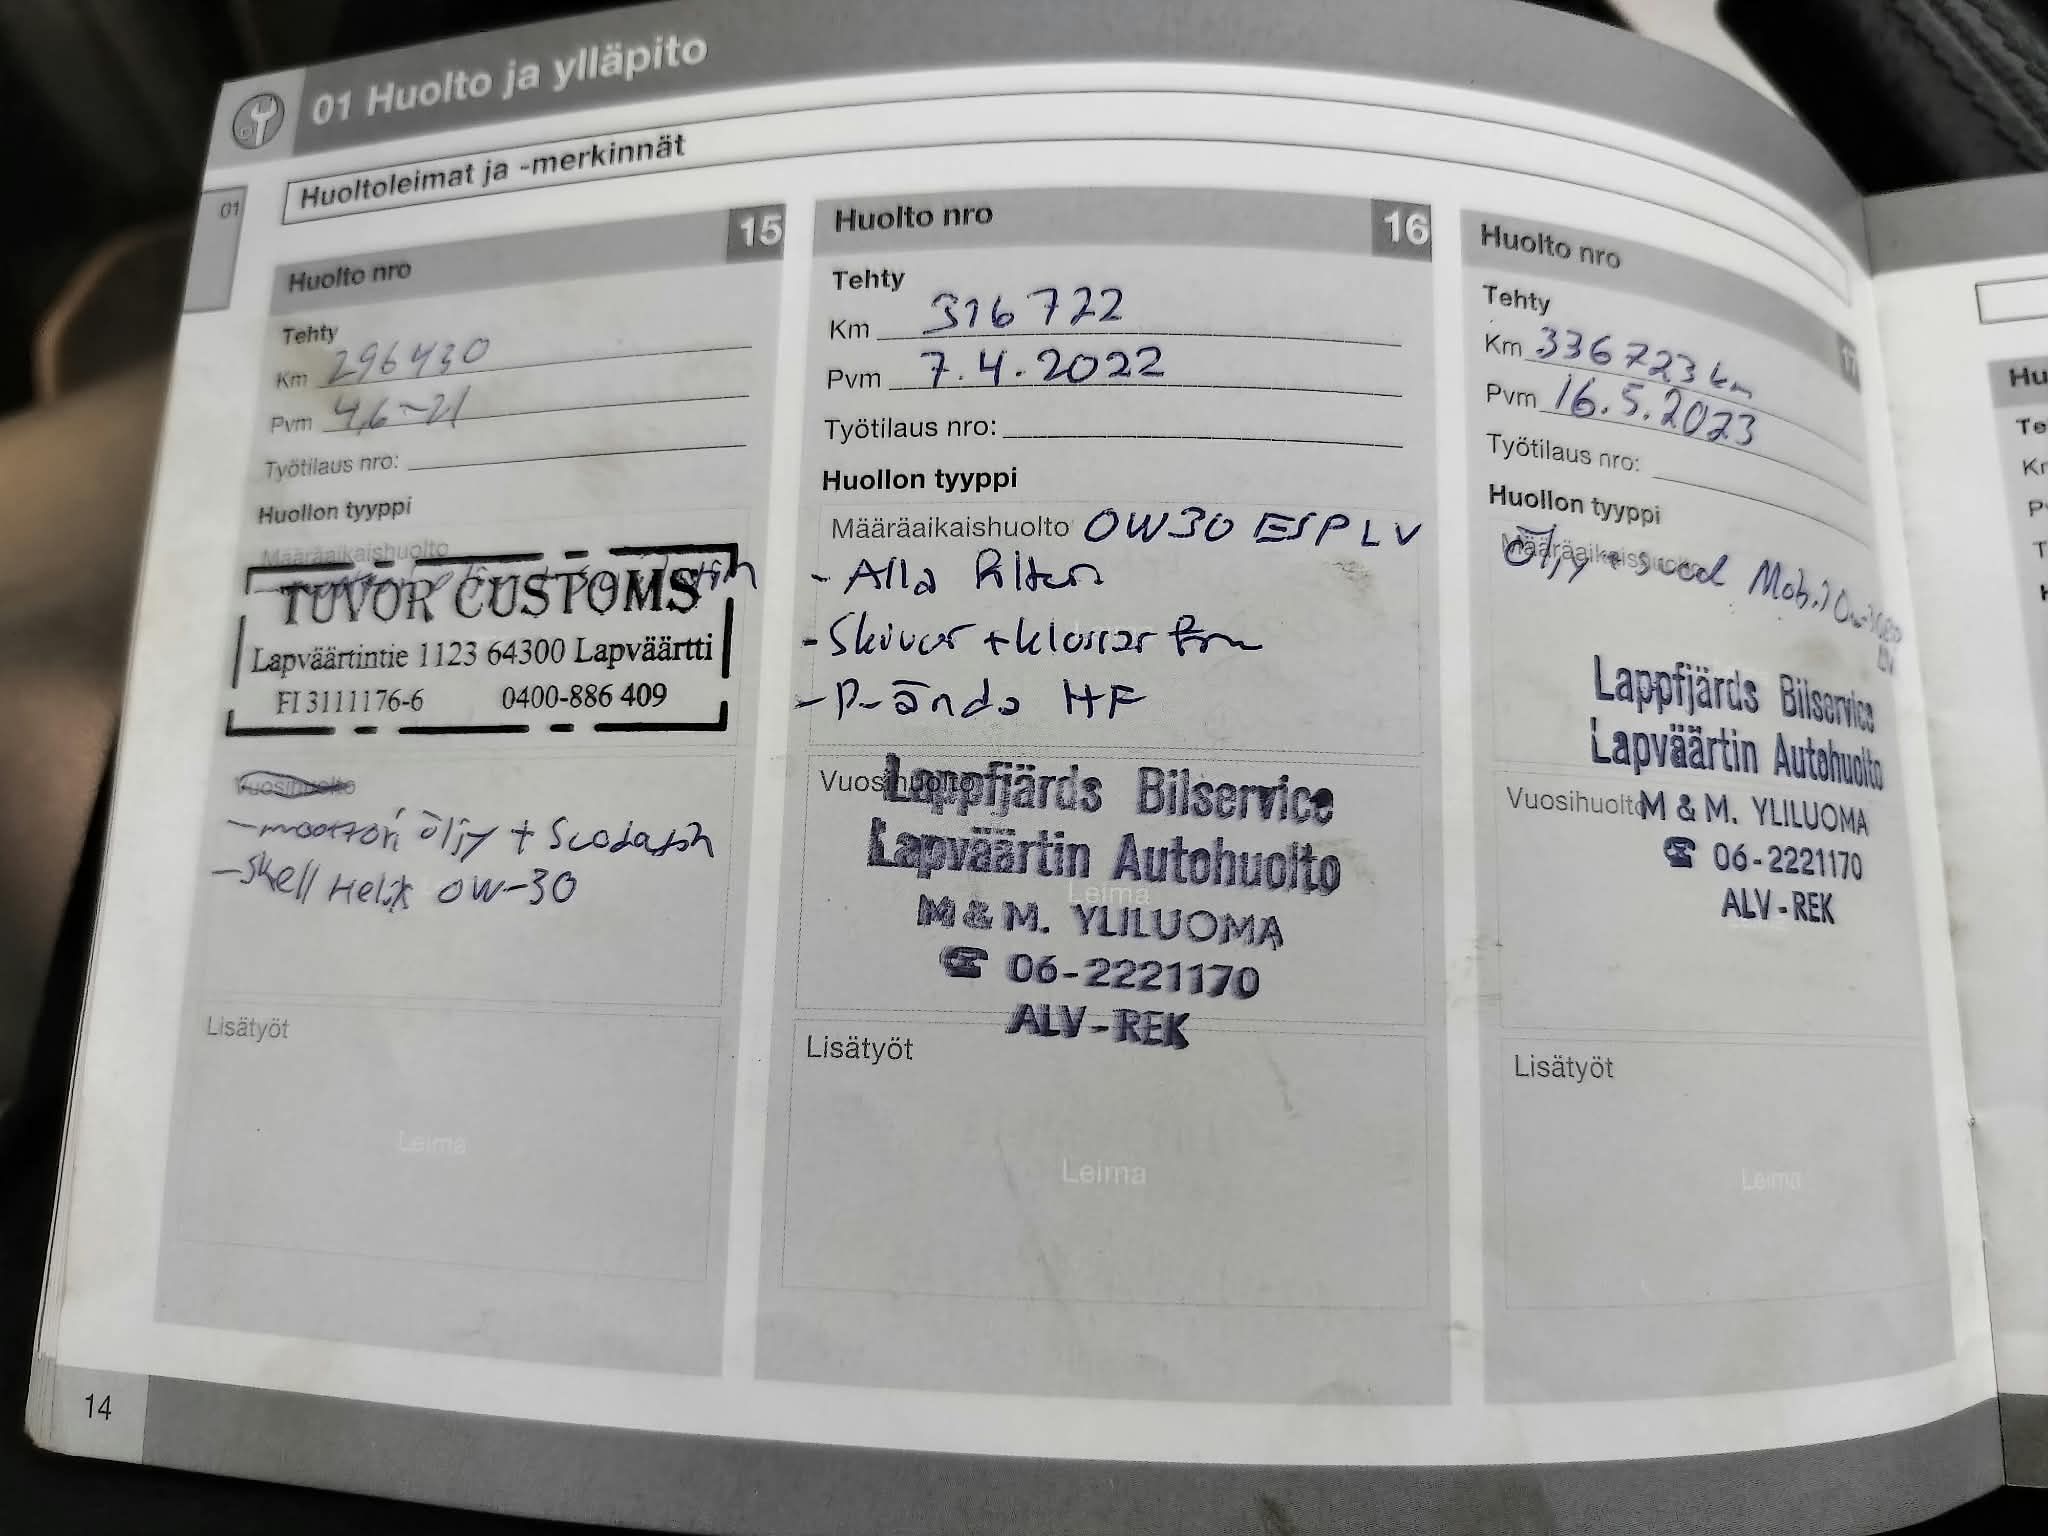 01 Huolto ja ylläpito
01
Huoltoleimat ja -merkinnät
Huolto nro 15
Tehty
Km 296430
Pvm 4,6-21
Työtilaus nro:
Huollon tyyppi
Määräaikaishuolto
TUVOR CUSTOMS
Lapväärtintie 1123 64300 Lapväärtti
FI 3111176-6 0400-886 409
Vuosihuolto
-moottori öljy + Suodatin
-Shell Helix 0W-30
Lisätyöt
Leima
14
Huolto nro 16
Tehty
Km 316722
Pvm 7.4.2022
Työtilaus nro:
Huollon tyyppi
Määräaikaishuolto 0W30 ESP LV
- Alla filter
- Skivor + klossar fram
- P-ända HF
Vuosihuolto
Lappfjärds Bilservice
Lapväärtin Autohuolto
Leima
M & M. YLILUOMA
☎ 06-2221170
ALV-REK
Lisätyöt
Leima
Huolto nro
17
Tehty
Km 336723 km
Pvm 16.5.2023
Työtilaus nro:
Huollon tyyppi
Määräaikaishuolto
Öljy + suod Mob.1 0w-30 ESP
LV
Lappfjärds Bilservice
Lapväärtin Autohuolto
Vuosihuolto
M & M. YLILUOMA
☎ 06-2221170
ALV-REK
Lisätyöt
Leima